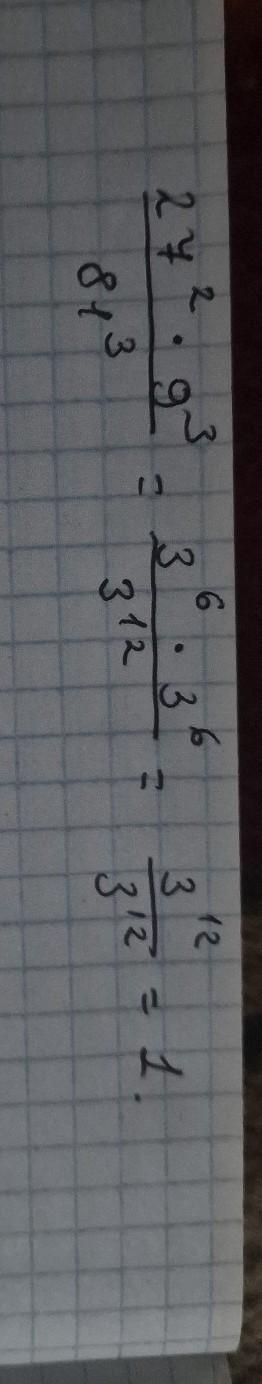 27² · 9³ / 81³ = 3⁶ · 3⁶ / 3¹² = 3¹² / 3¹² = 1.